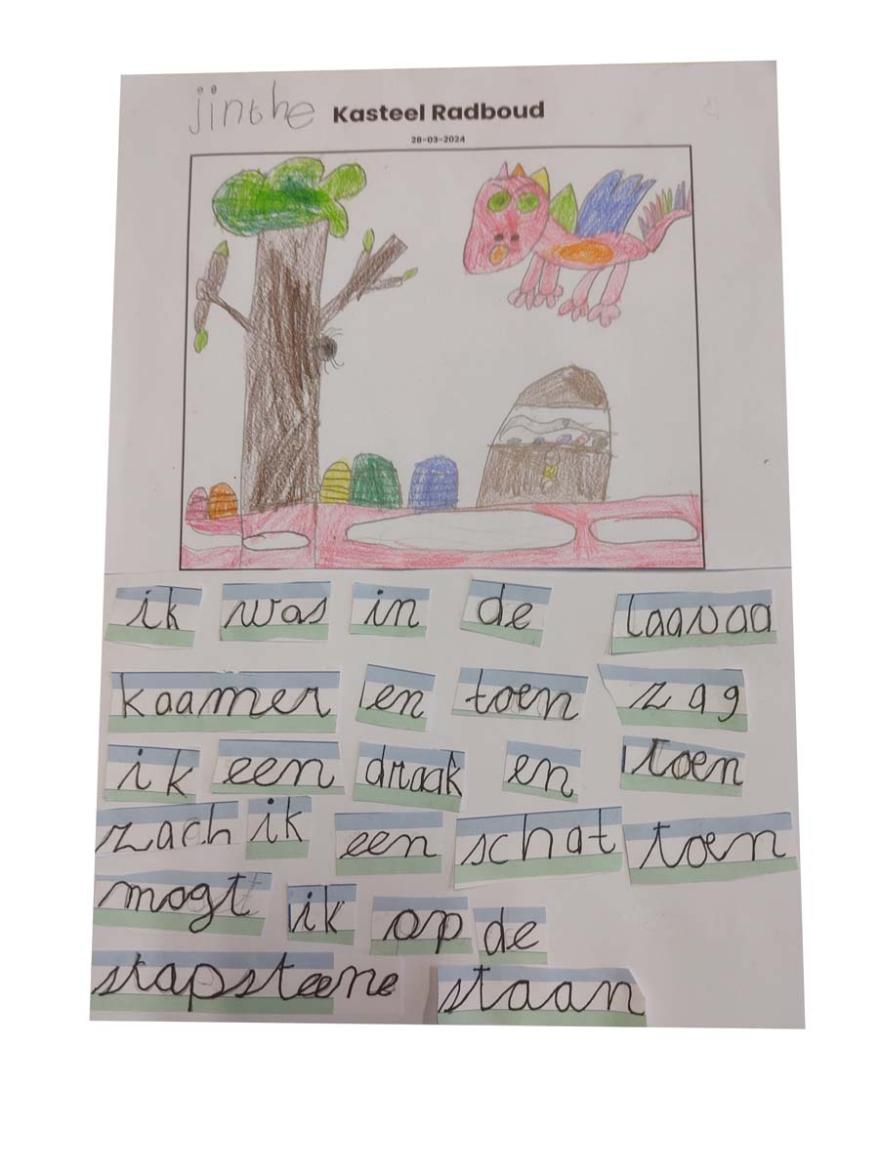 jinthe Kasteel Radboud
28-03-2024
ik was in de laavaa
kaamer en toen zag
ik een draak en toen
zach ik een schat toen
mogt ik op de
stapsteene staan